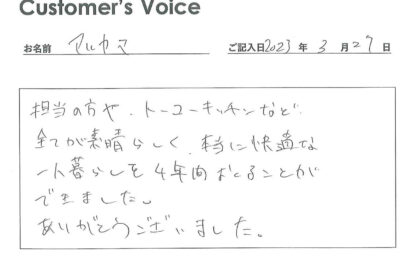 Customer's Voice
お名前 マルヤマ ご記入日2023年3月27日
担当の方や、トーコーキッチンなど、
全てが素晴らしく、本当に快適な
一人暮らしを4年間おくることが
できました。
ありがとうございました。